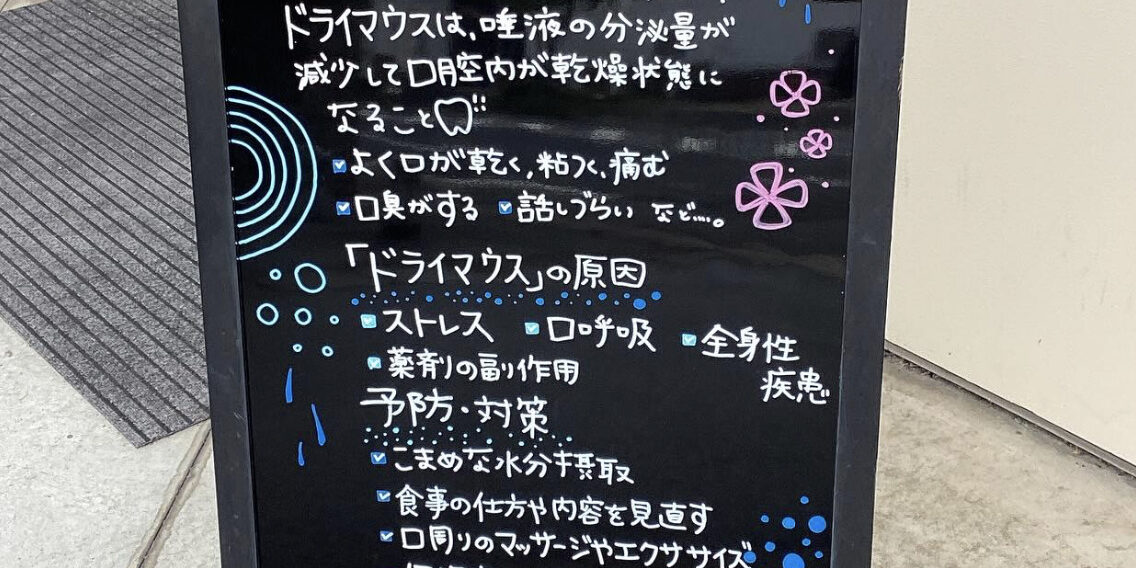 ドライマウスは、唾液の分泌量が
減少して口腔内が乾燥状態に
なること
よく口が乾く,粘つく、痛む
口臭がする 話しづらい など....。
「ドライマウス」の原因
ストレス 口呼吸 全身性
疾患
薬剤の副作用
予防・対策
こまめな水分摂取
食事の仕方や内容を見直す
口周りのマッサージやエクササイズ